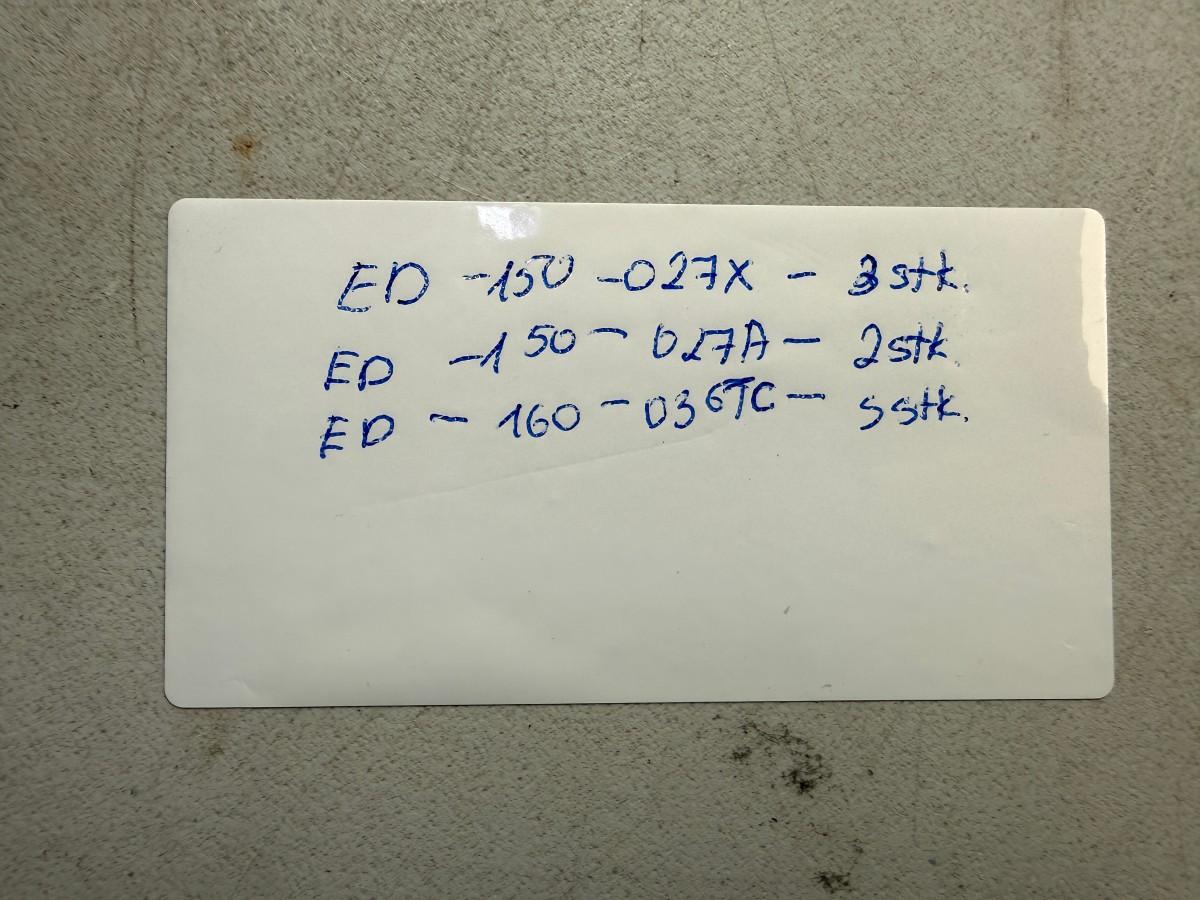 ED -150 -027X - 3 stk.
ED -150 - 027A - 2 stk.
ED - 160 - 036TC - 5 stk.